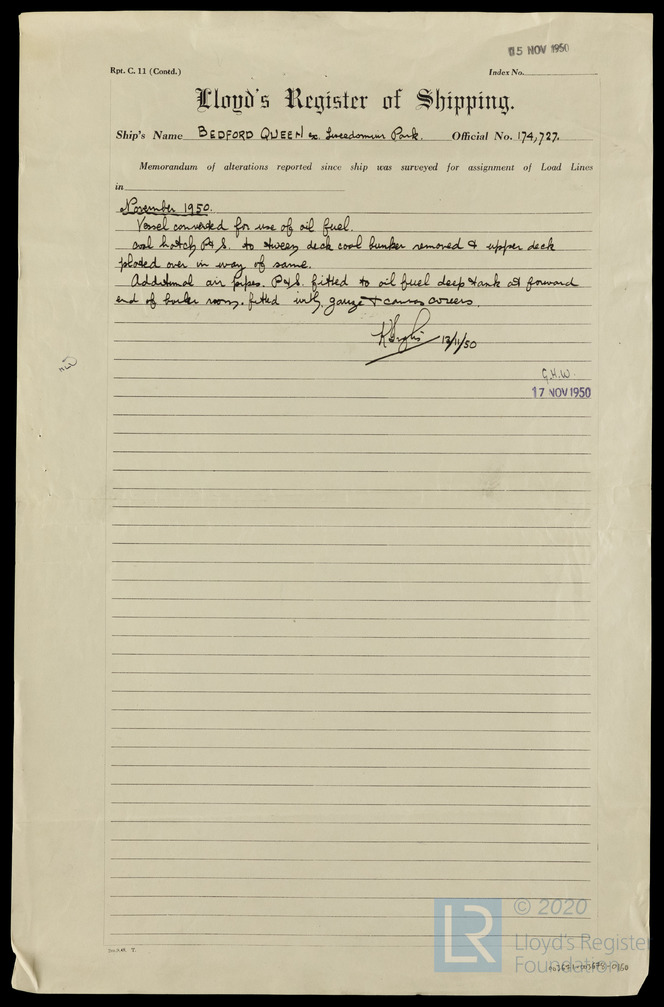 15 NOV 1950
Rpt. C. 11 (Contd.)
Index No.
Lloyd's Register of Shipping.
Ship's Name BEDFORD QUEEN ex. Park. Official No. 174,727.
Memorandum of alterations reported since ship was surveyed for assignment of Load Lines
in
November 1950.
Vessel converted for use of oil fuel.
Coal hatch P & S. to tween deck coal bunker removed & upper deck
plated over in way of same.
Additional air pipes. P & S. fitted to oil fuel deep tank at forward
end of boiler room. fitted with gauze & canvas covers.
13/11/50
G.H.W.
17 NOV 1950
© 2020
LR
Lloyd's Register
Foundation